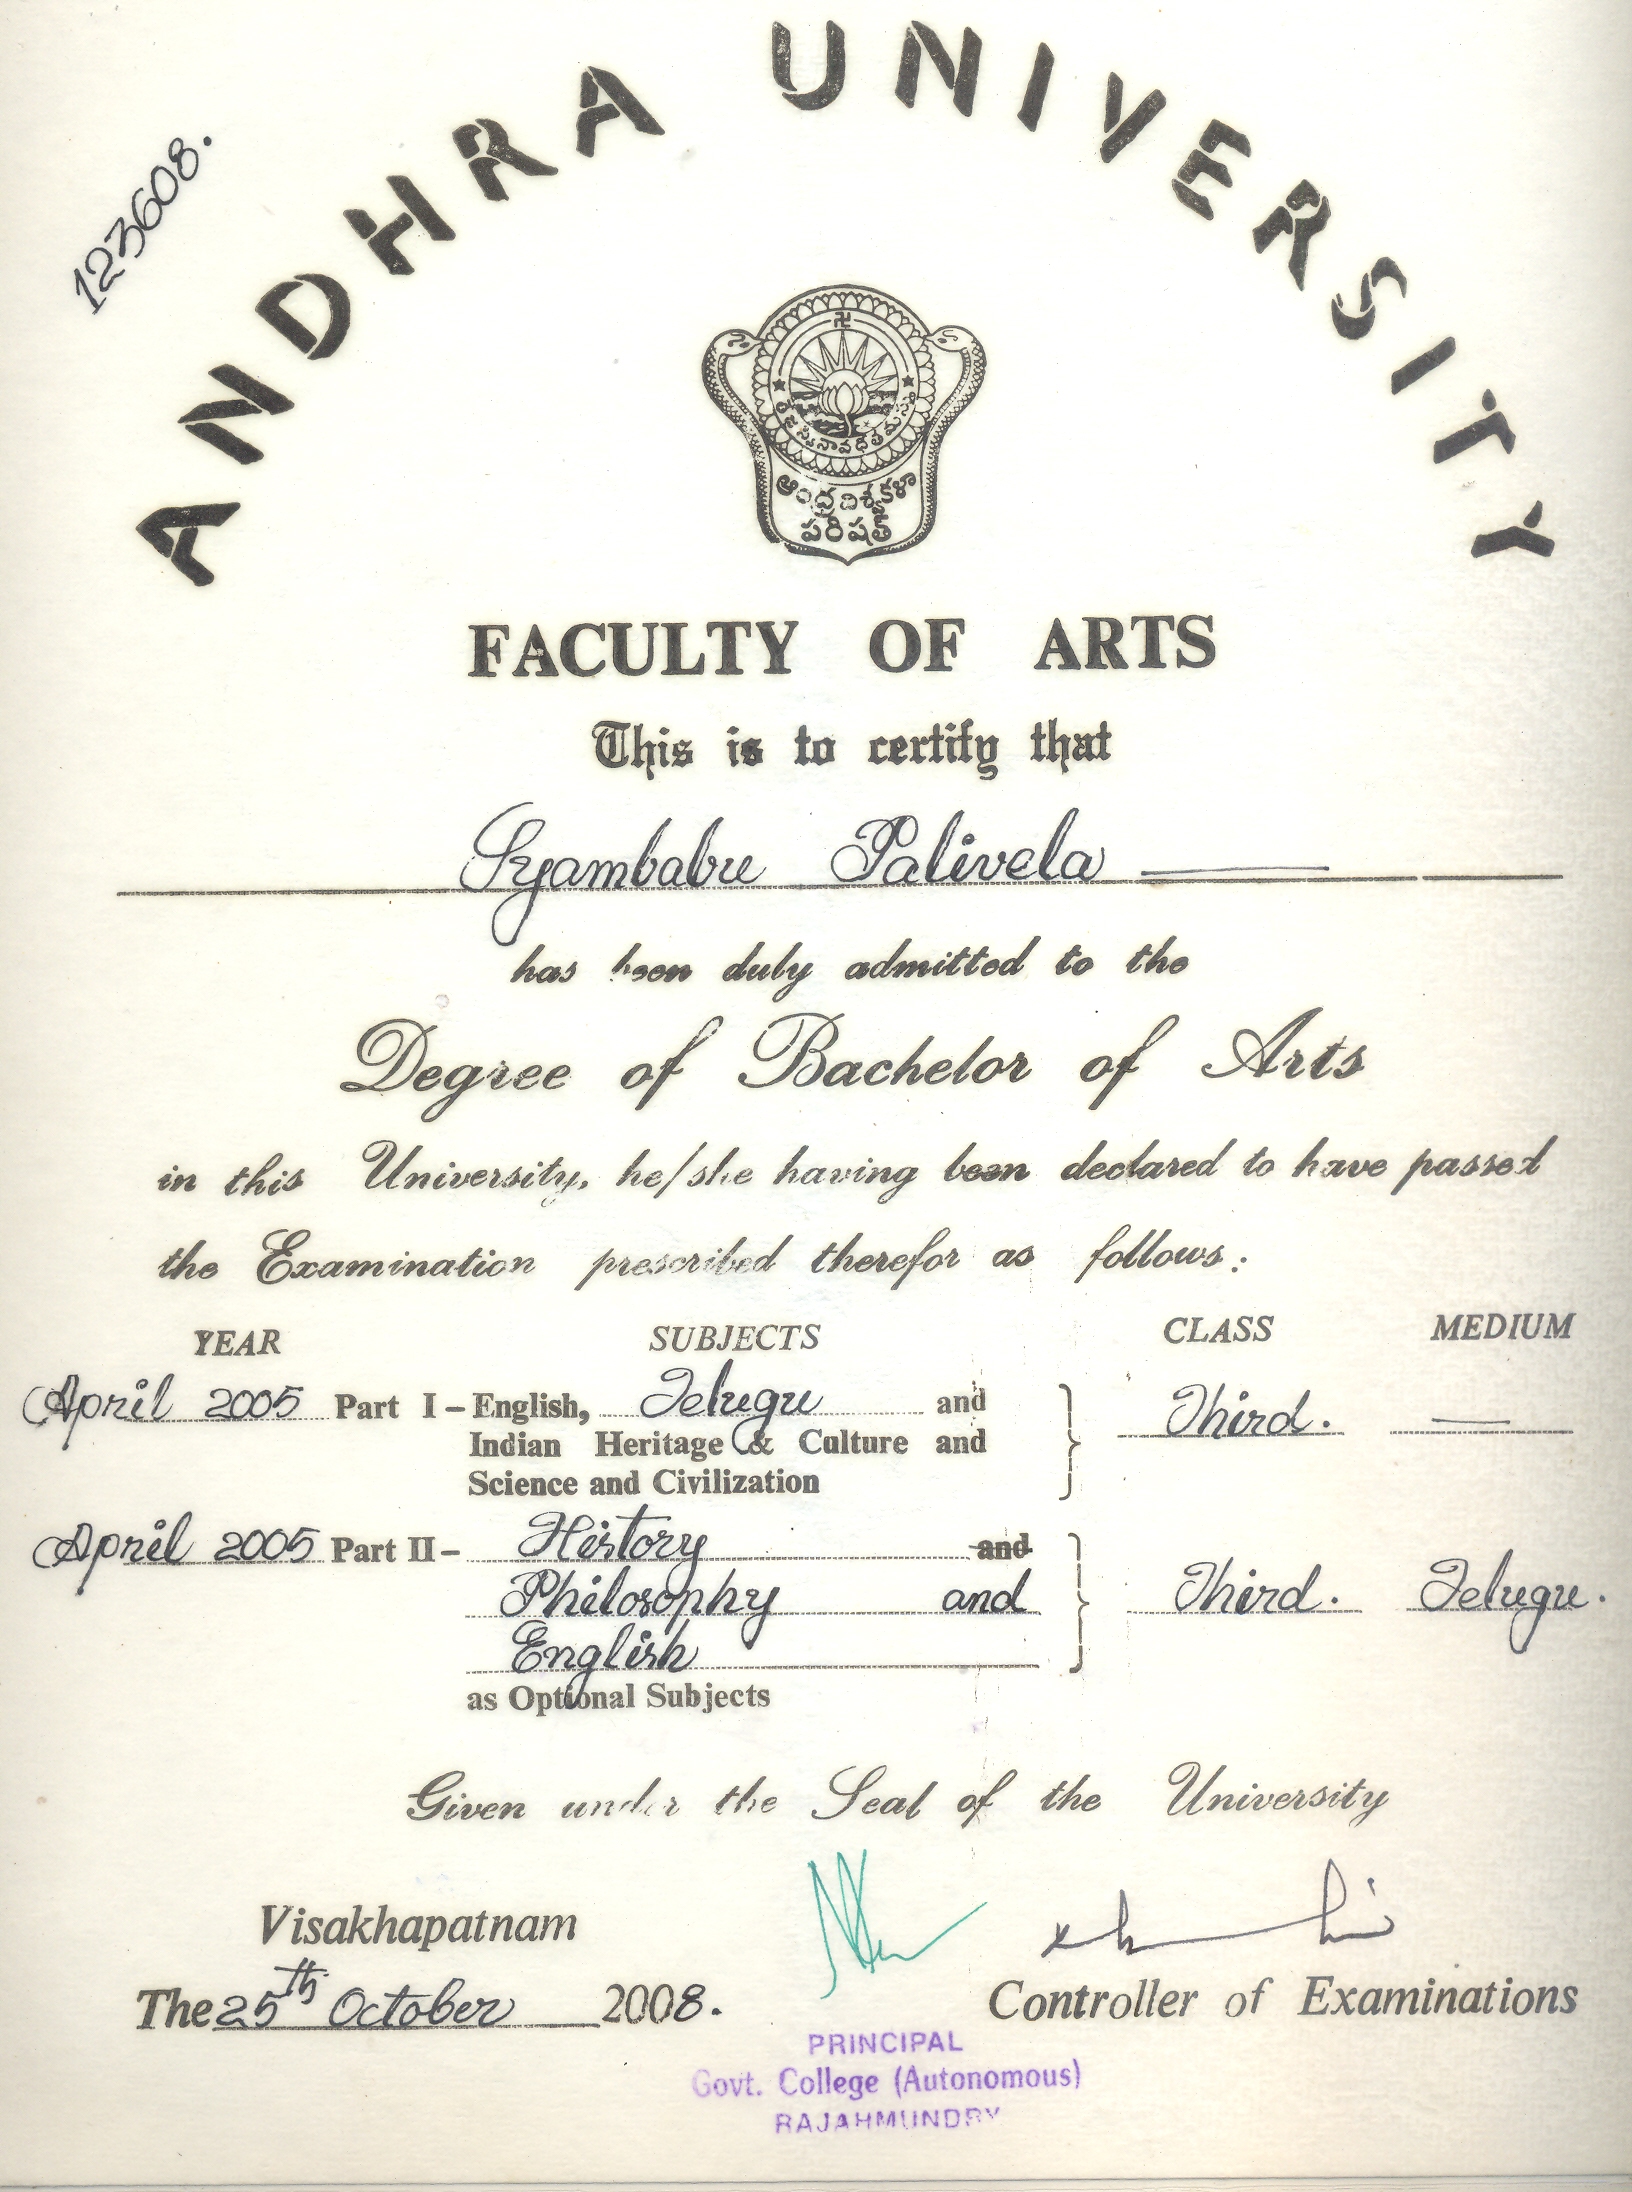 123608.
ANDHRA UNIVERSITY
తేజస్వినావధీతమస్తు
ఆంధ్రవిశ్వకళా
పరిషత్
FACULTY OF ARTS
This is to certify that
Syambabu Palivela
has been duly admitted to the
Degree of Bachelor of Arts
in this University, he/she having been declared to have passed
the Examination prescribed therefor as follows:
YEAR SUBJECTS CLASS MEDIUM
April 2005 Part I - English, Telugu and Third. —
Indian Heritage & Culture and
Science and Civilization
April 2005 Part II - History and
Philosophy and Third. Telugu.
English
as Optional Subjects
Given under the Seal of the University
Visakhapatnam
The 25th October 2008.
Controller of Examinations
PRINCIPAL
Govt. College (Autonomous)
RAJAHMUNDRY